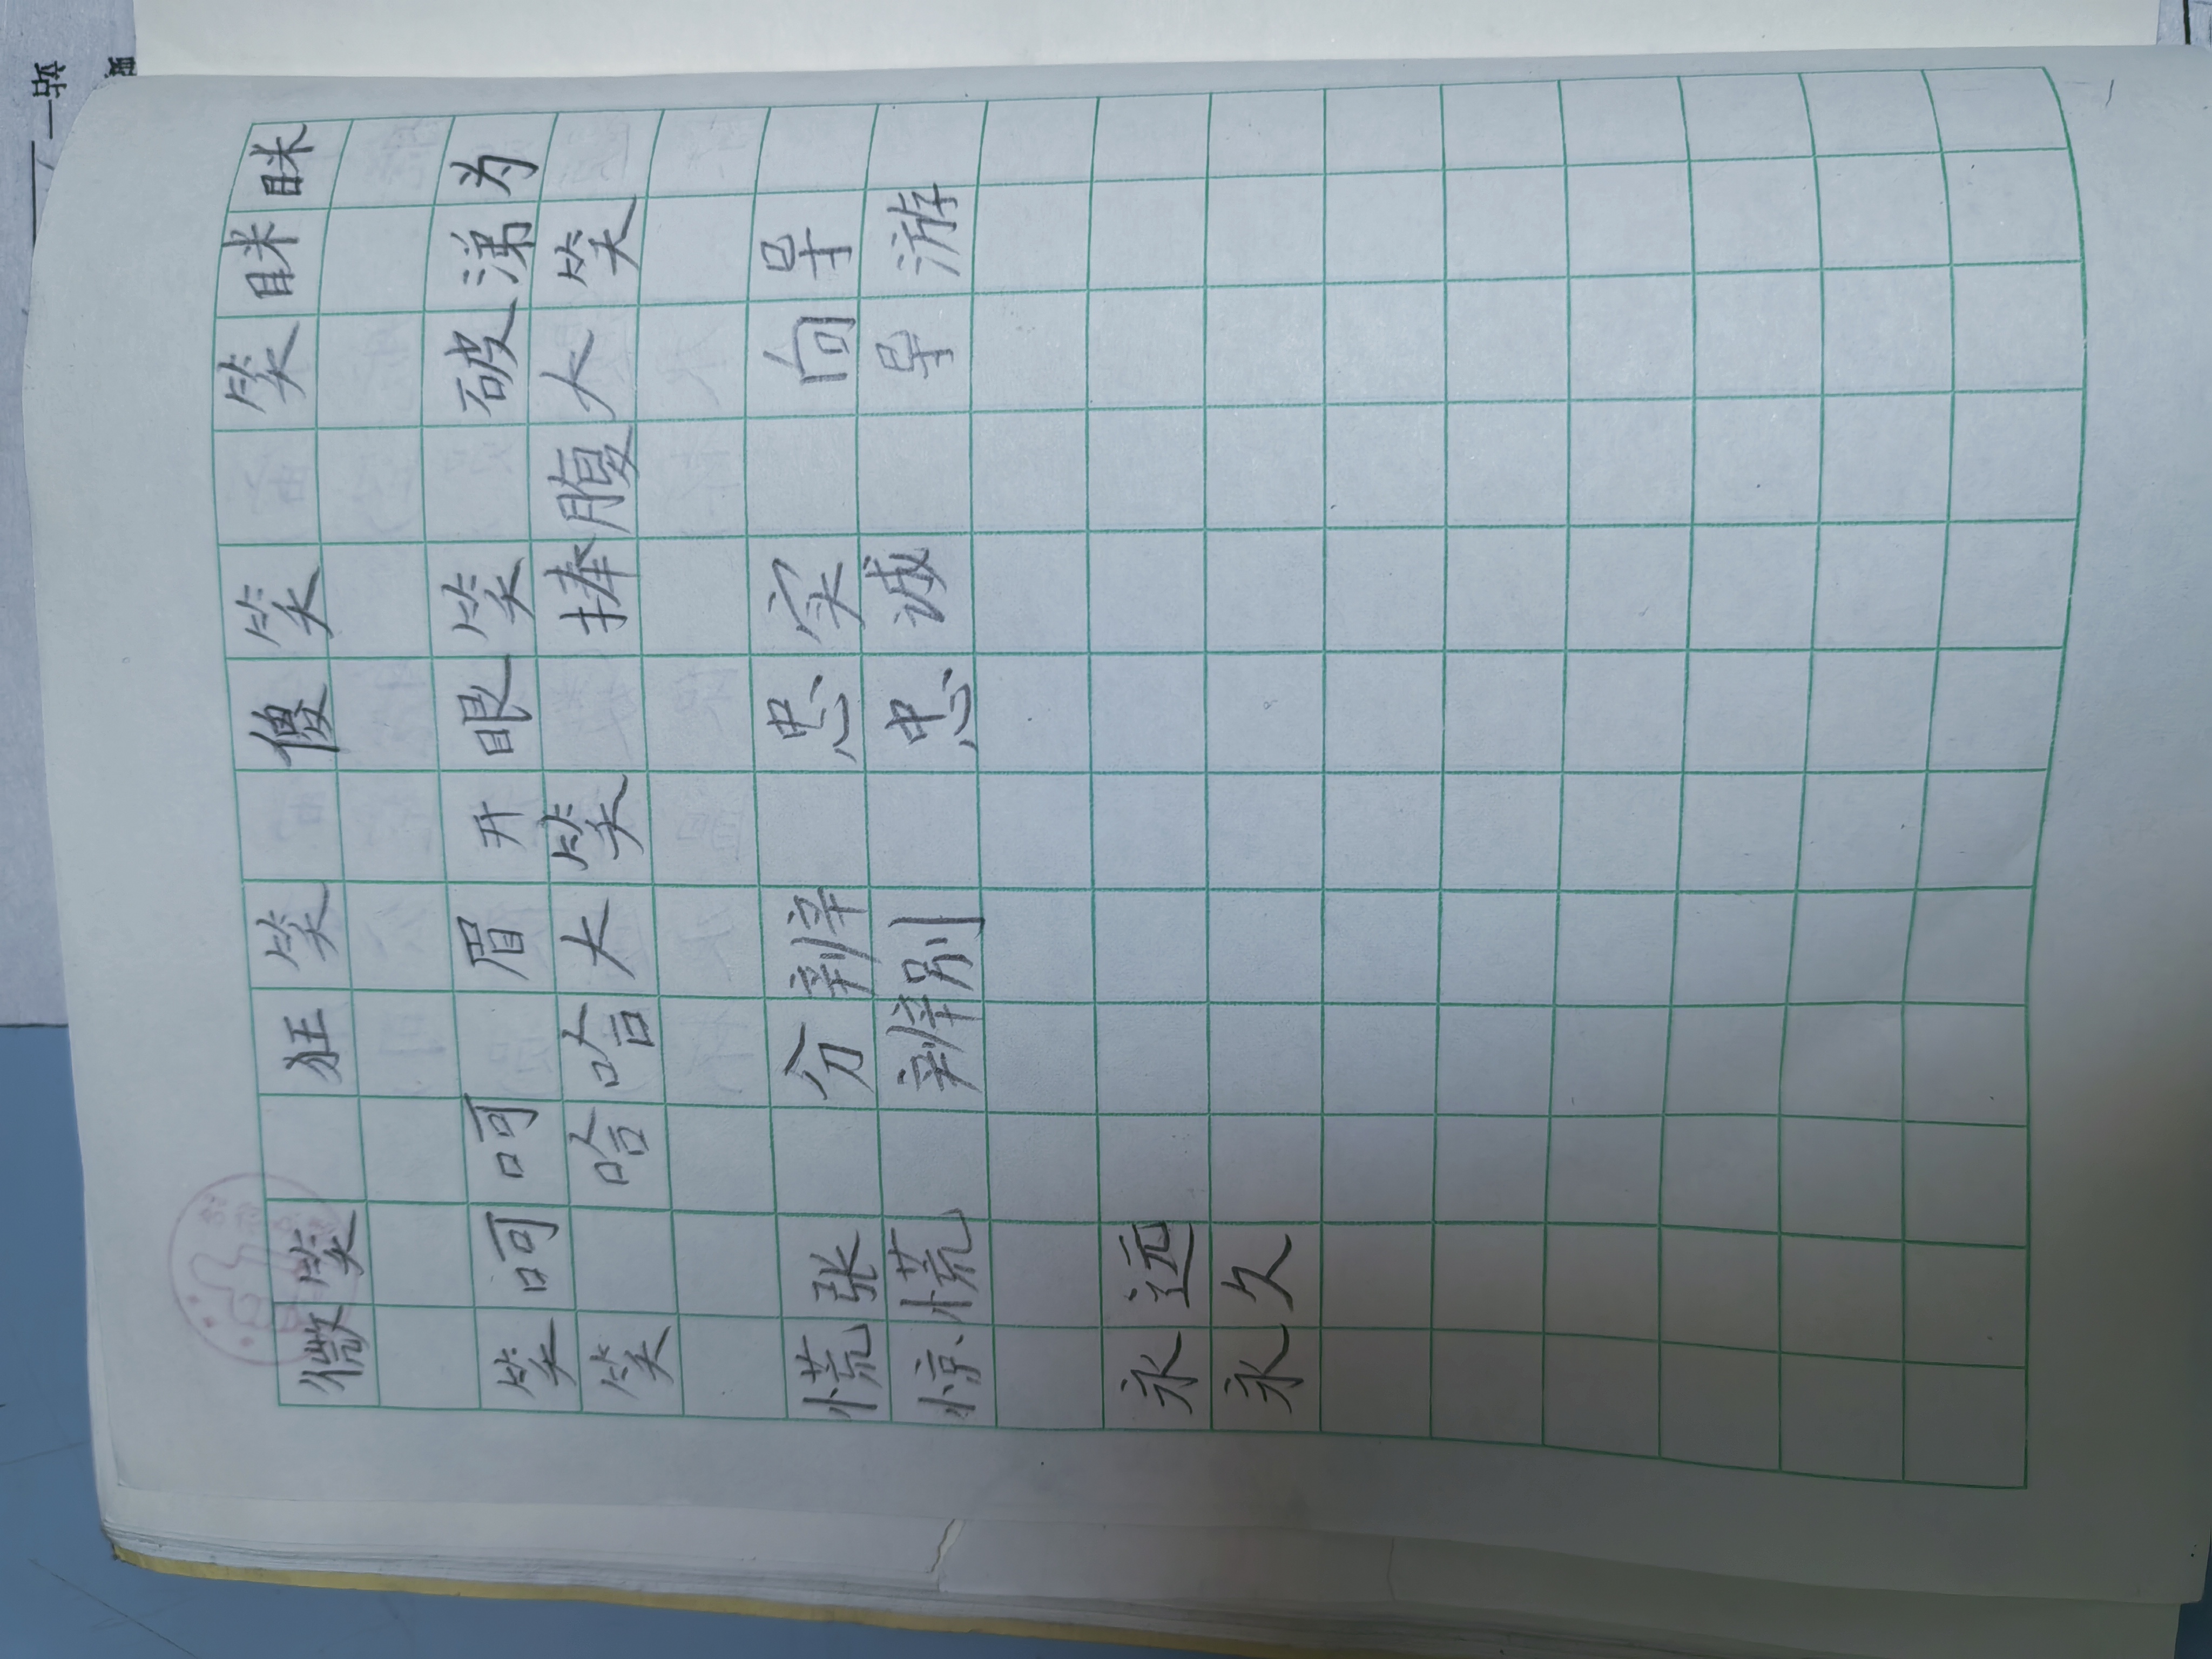 微笑 狂笑 傻笑 笑眯眯
笑呵呵 眉开眼笑 破涕为
笑 哈哈大笑 捧腹大笑
慌张 分辨 忠实 向导
惊慌 辨别 忠诚 导游
永远
永久